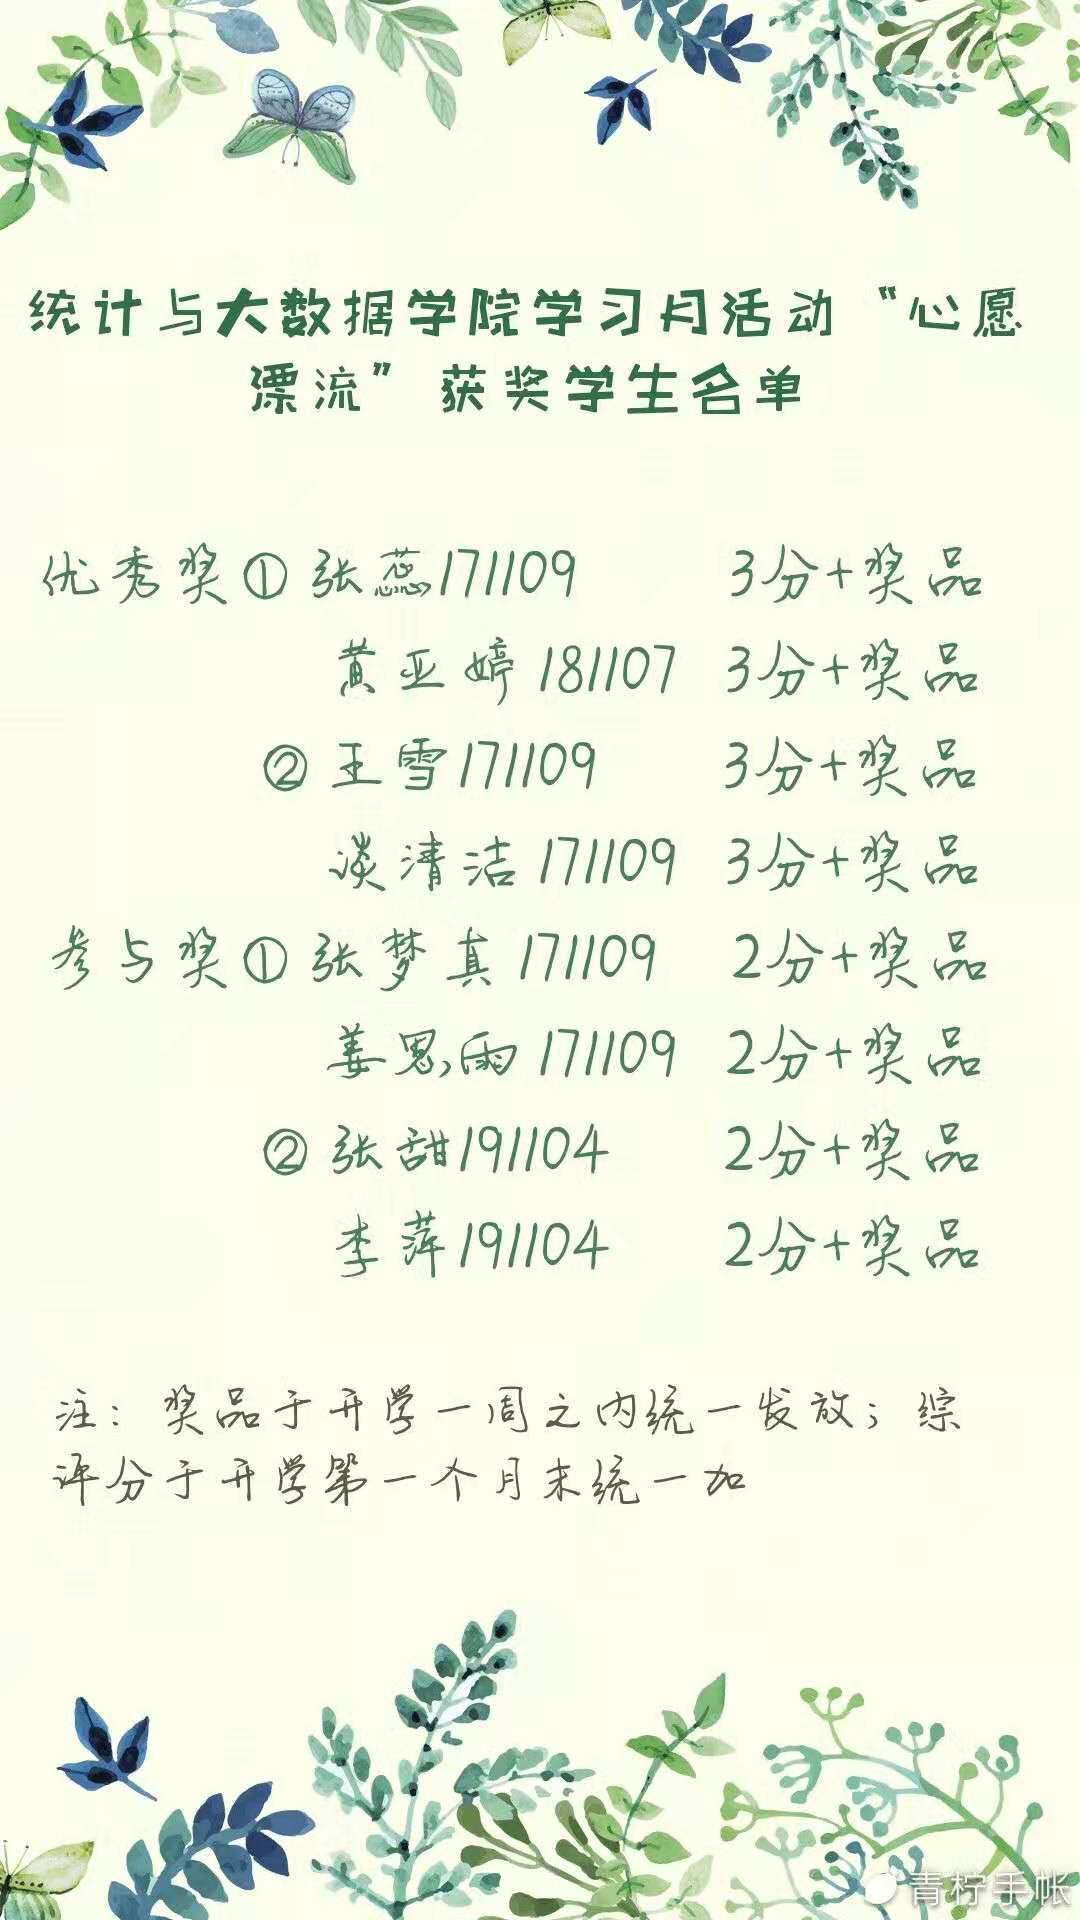 统计与大数据学院学习月活动“心愿
漂流”获奖学生名单
优秀奖①张蕊171109 3分+奖品
黄亚婷181107 3分+奖品
②王雪171109 3分+奖品
淡清洁171109 3分+奖品
参与奖①张梦真171109 2分+奖品
姜思雨171109 2分+奖品
②张甜191104 2分+奖品
李萍191104 2分+奖品
注：奖品于开学一周之内统一发放；综
评分于开学第一个月末统一加
青柠手帐